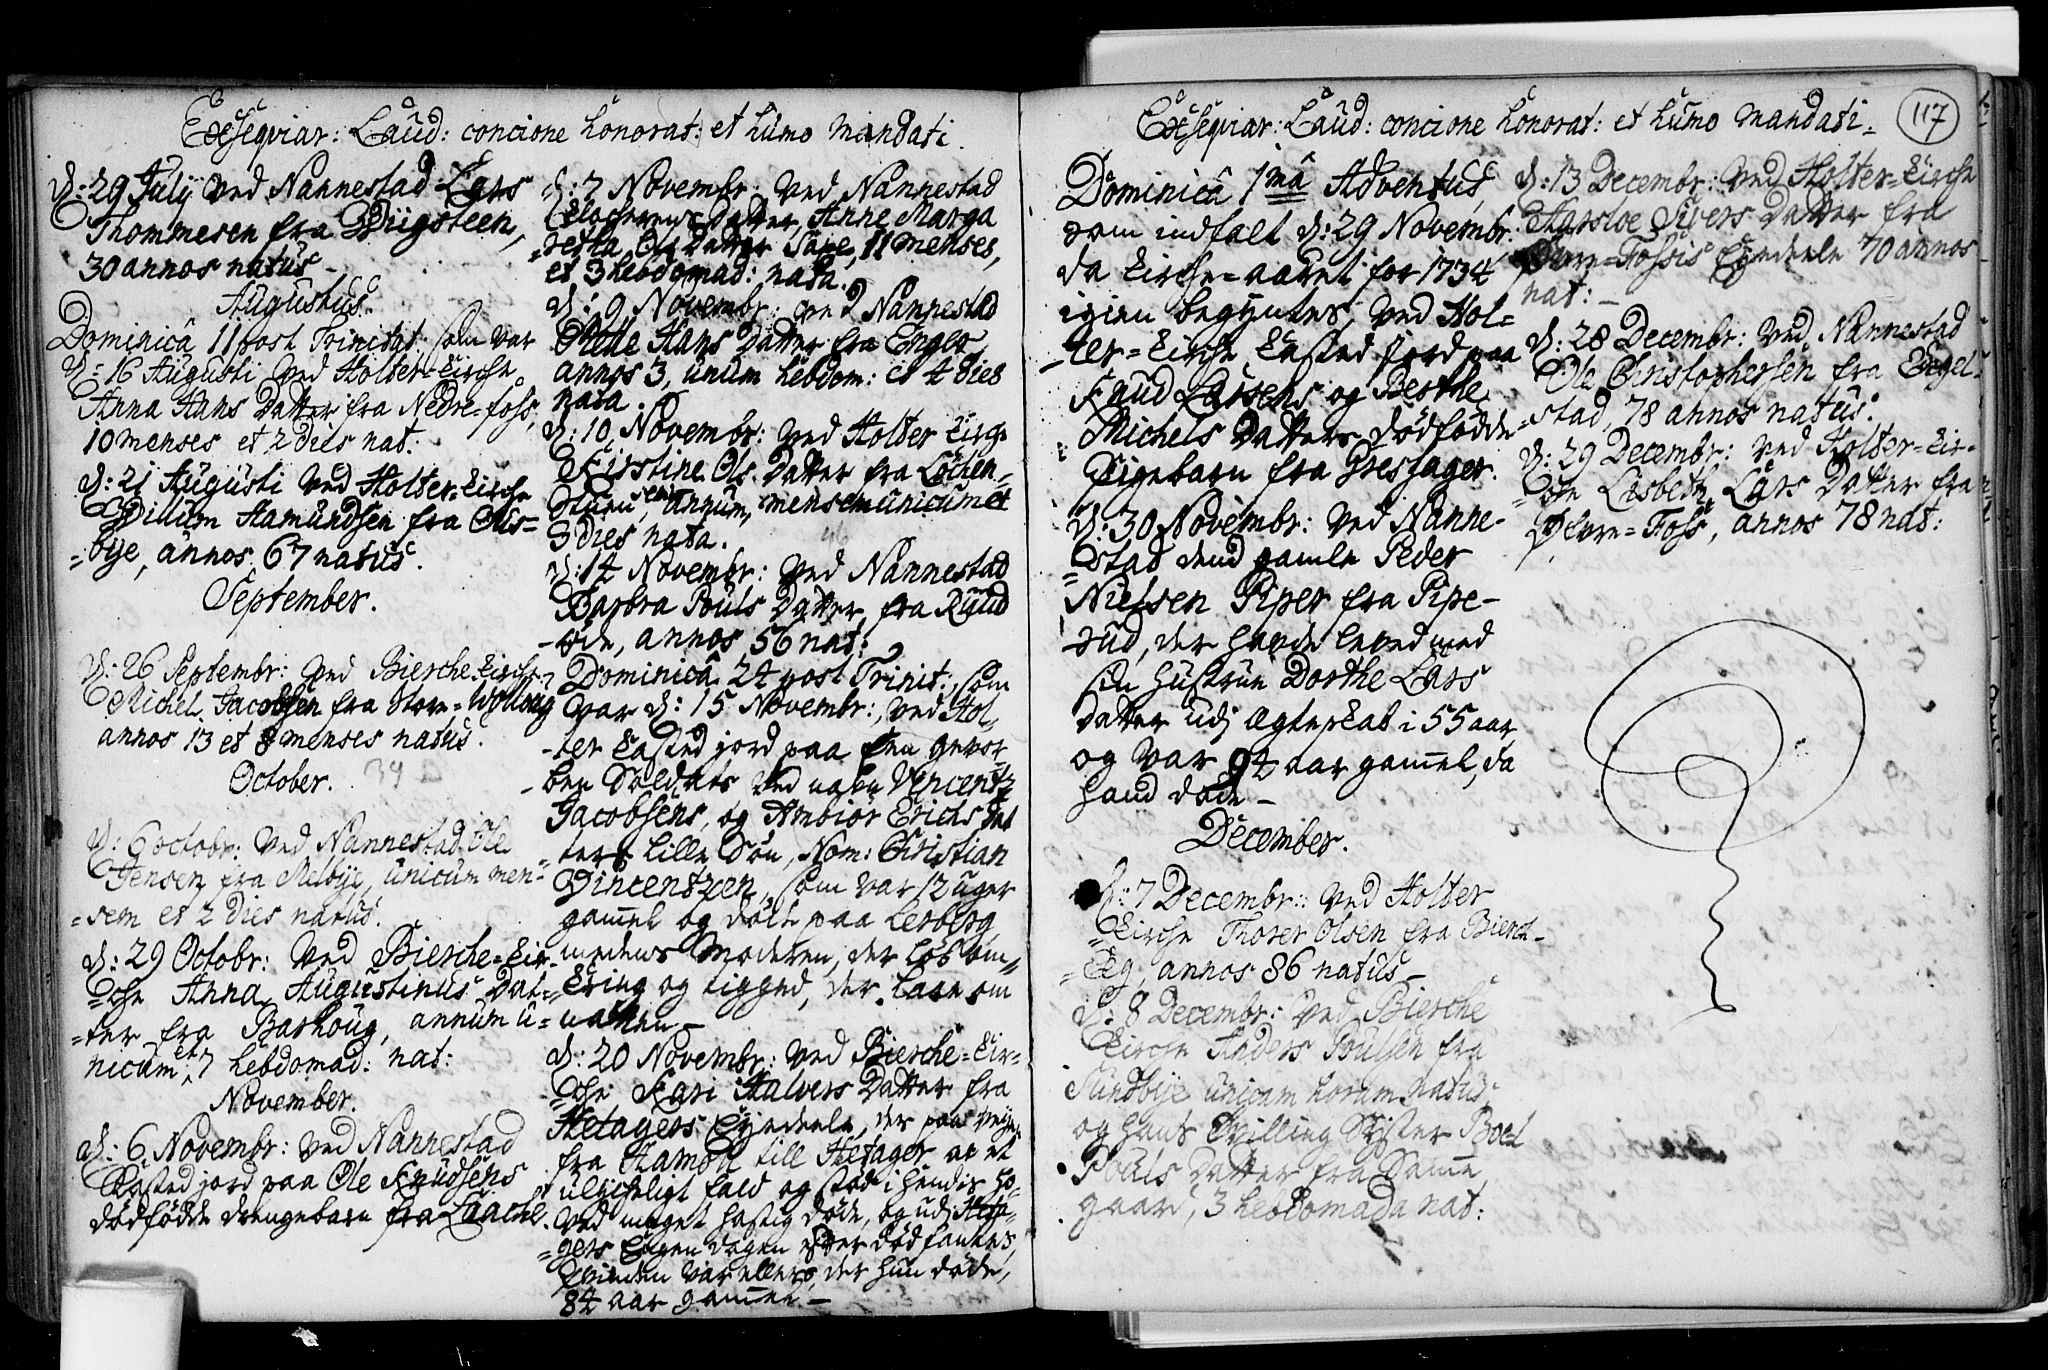 Exseqviar: Laud: concione honorat: et humo mandati.
d: 29 July ved Nannestad Lars
Thommesen fra
30 annos natus –
Augustus.
Dominicâ 11 post Trinitat: som var
d: 16 Augusti ved Holter-Kirche
Anna Hans Datter fra Nedre-foss,
10 menses et 2 dies nat:
d: 21 Augusti ved Holter-Kirche
Amundsen fra Ous-
=bye, annos 67 natus.
September.
d: 26 Septembr: ved Bierche-Kirche
Michel Jacobsen fra Store-
annos 13 et 8 menses natus.
October. 39
d: 6 octobr: ved Nannestad Ole
Jensen fra Melbye, unicum men-
=sem et 2 dies natus.
d: 29 Octobr: ved Bierche-Kir-
=che Anna Augustinus Dat-
=ter fra Barhoug, annum u-
nicum et 7 hebdomad: nat:
November.
d: 6 Novembr: ved Nannestad
Kasted jord paa Ole Knudsens
dødfødde drengebarn fra Laache.
d: 7 Novembr: ved Nannestad
Klocherens Datter, Anne Marga
=retha Ols Datter 11 menses,
et 3 hebdomad: nata.
d: 9 Novembr: ved Nannestad
Hans Datter fra Enger
annos 3, unum hebdom: et 4 dies
nata.
d: 10 Novembr: ved Holter Kirche
Kirstine Ols Datter fra Løchen-
annum, mensem unicum et
3 dies nata.
d: 14 Novembr: ved Nannestad
Barbra Pouls Datter, fra Ruud
-øde, annos 56 nat:
Dominicâ 24 post Trinit:, som
var d: 15 Novembr:, ved Hol-
-ter Kasted jord paa een gevor-
ben Soldats ved nafn Vencentz
Jacobsens, og Ambiør Erichs Dat
=ters lille Søn, Nom: Christian
Vincentzen, som var 12 uger
gamel og døde paa Lesberg,
medens Moderen, der løb om-
Kring og tigged, der laae om
natten –
d: 20 Novembr: ved Bierche-Kir-
=che Kari Halvors Datter fra
Hetagers Eyedeele, der paa veyen
fra Hamon till Hetager at et
ulycheligt fald og stød i hendis Ho-
ved meget hastig døde, og udj Heta-
=gers dagen efter død fantes,
qvinden var ellers, der hun døde,
84 aar gammel –
Exseqviar: Laud: concione honorat: et humo mandati= 117
Dominicâ 1mâ Adventus,
som indfalt d: 29 Novembr:
da Kirche-aaret for 1734
igien begyntes, ved Hol-
ter-Kirche Kasted jord paa
Knud Larsens og Berthe
Michels Datters dødfødde
Pigebarn fra Gresager.
d: 30 Novembr: ved Nanne-
=stad dend gamle Peder
Nielsen Piper fra Pipe-
rud, der hafde leved med
sin Hustrue Dorthe Lars
Datter udj Ægteskab i 55 aar
og var 94 aar gamel, da
hand døde –
December.
d: 7 Decembr: ved Holter
=Kirche Thorer Olsen fra Bierch-
=Eg, annos 86 natus –
d: 8 Decembr: ved Bierche
Kirche Anders Poulsen fra
Sundbye unicam horam natus,
og hans Tvilling Syster Boel
Pouls Datter fra Same
gaard, 3 hebdomada nat:
d: 13 Decembr: ved Holter-Kirche
Sifvers Datter fra
Øvre-Fossis Eyedeele 70 annos
nat: –
d: 28 Decembr: ved Nannestad
Ole Christophersen fra Engel-
=stad, 78 annos natus.
d: 29 Decembr: ved Holter-Kir-
=che Lisbeth Lars Datter fra
Øfvre-Foss, annos 78 nat: